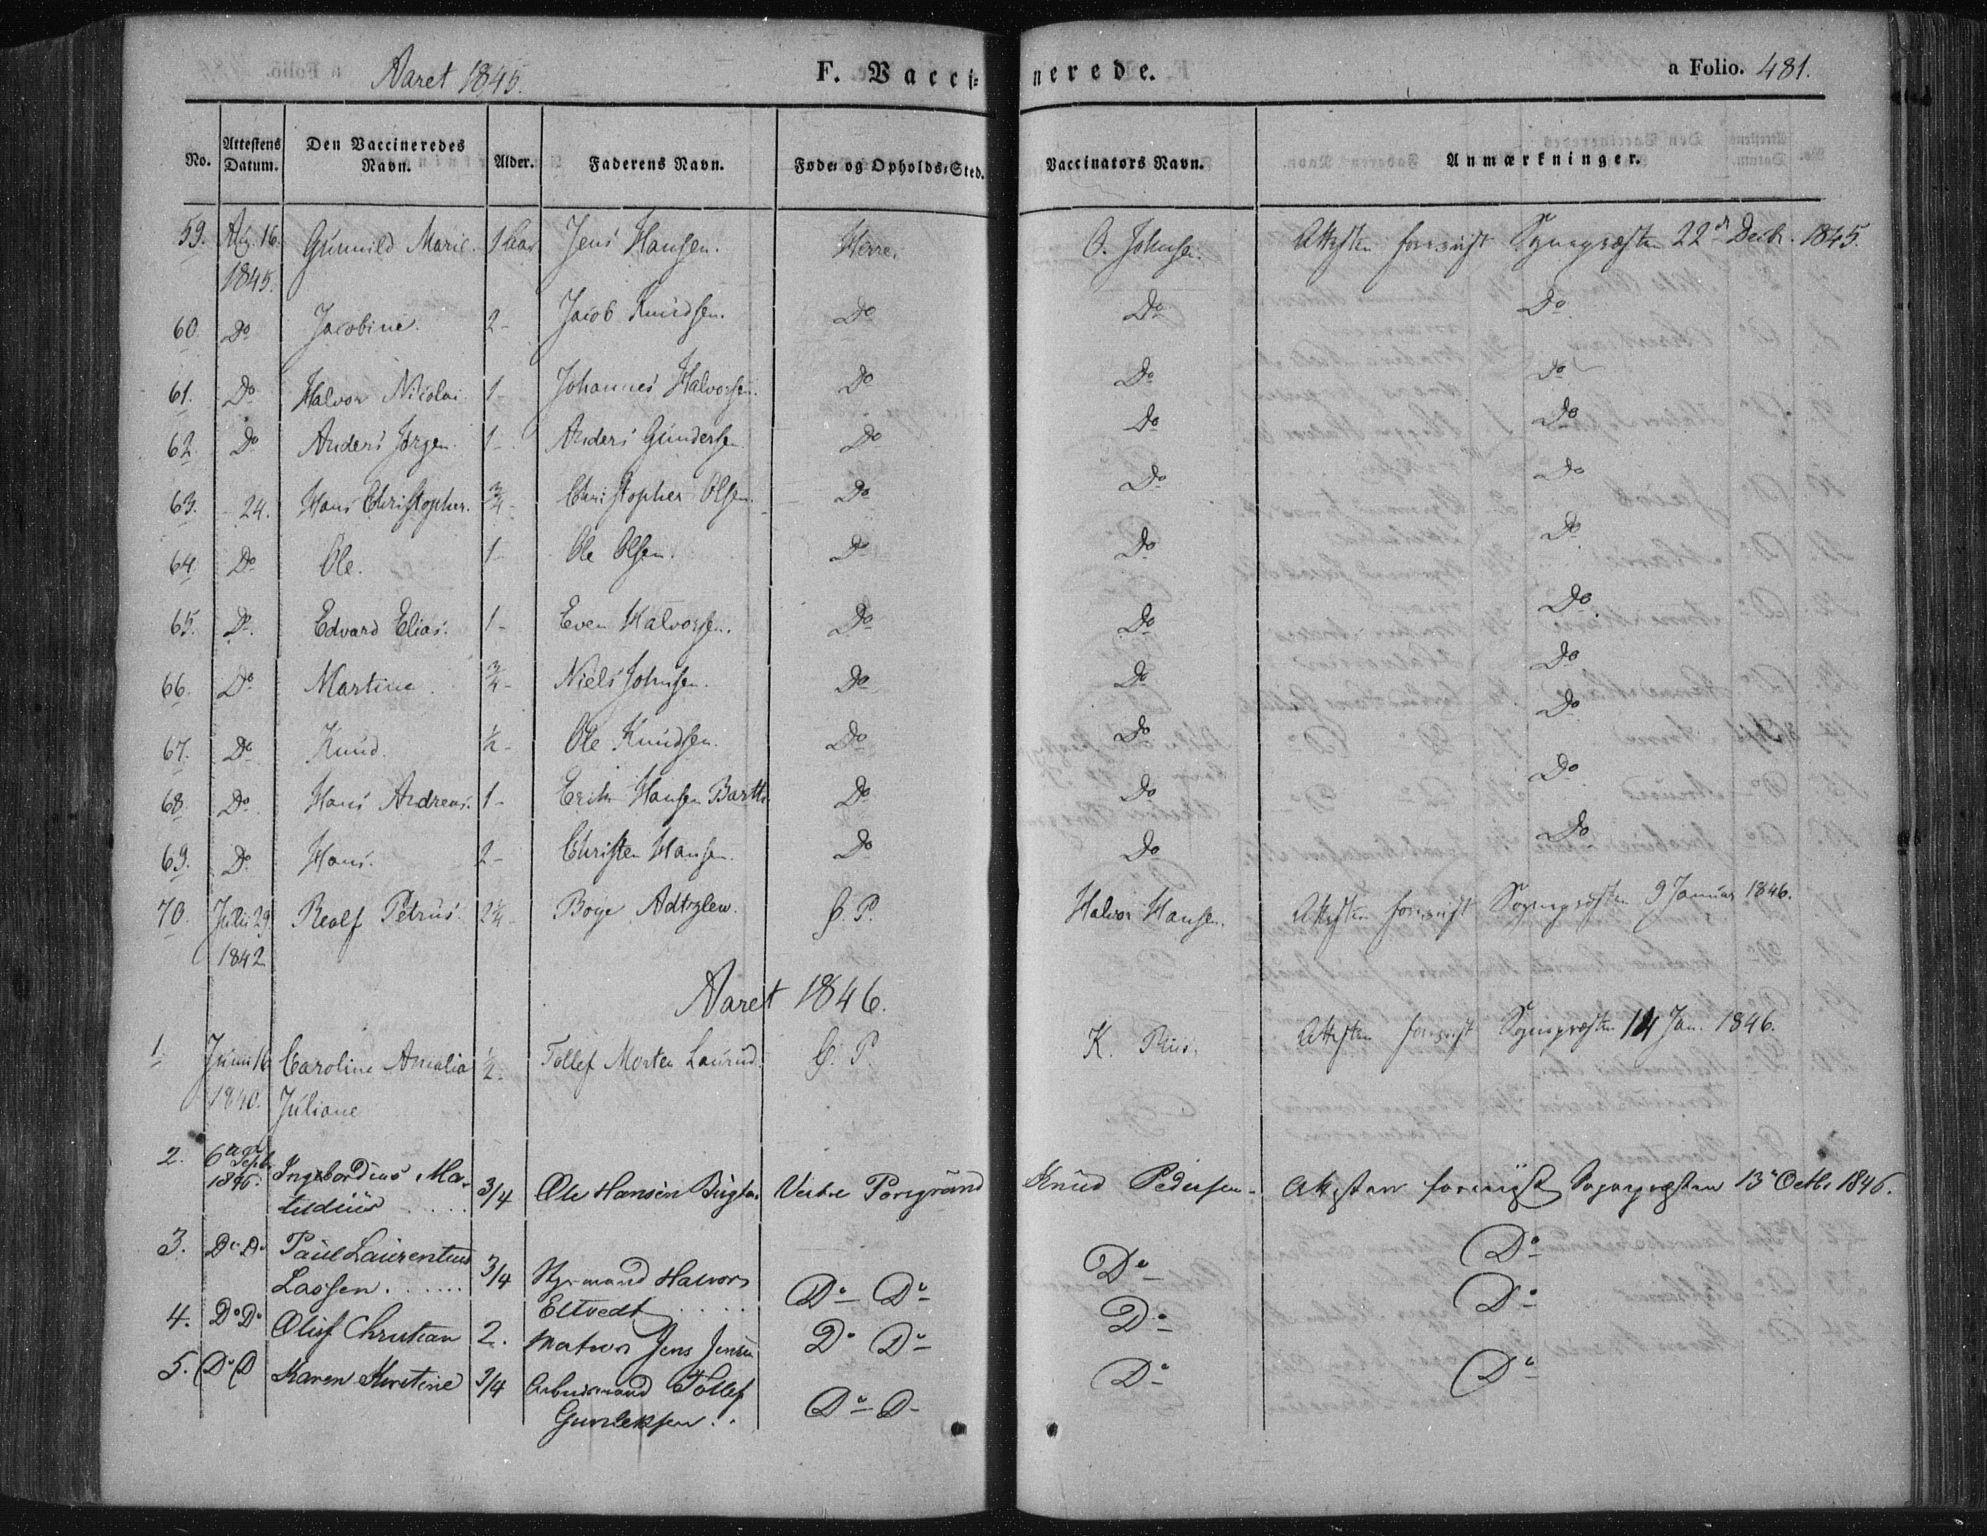 Aaret 1845. F. Vaccinerede. a Folio. 481.
No. Attestens Datum. Den Vaccineredes Navn. Alder. Faderens Navn. Føde- og Opholds-Sted. Vaccinators Navn. Anmærkninger.
59. Aug. 16. 1845. Gunnild Marie. 1 Aar Jens Hansen. Herre. O. Johnsen. Attesten foreviist Sognepræsten 22de Decbr. 1845.
60. Do Jacobine. 2- Jacob Knudsen. Do Do Do
61. Do Halvor Nicolai 1- Johannes Halvorsen. Do Do Do
62. Do Anders Jørgen. 1- Anders Gundersen Do Do Do
63. - 24. Hans Christopher. 3/4- Christopher Olsen. Do Do Do
64. Do Ole. 1- Ole Olsen. Do Do Do
65. Do Edvard Elias. 1- Even Halvorsen. Do Do Do
66. Do Martine 3/4- Niels Johnsen. Do Do Do
67. Do Knud. 1/2- Ole Knudsen. Do Do Do
68. Do Hans Andreas. 1- Erik Hansen Do Do Do
69. Do Hans. 2- Christen Hansen. Do Do Do
70. Juli 29 1842 Realf Petrus. 2 1/4- Boye P. Halvor Hansen. Attesten foreviist Sognepræsten 9 Januar 1846.
Aaret 1846.
1 Juni 16 1840. Caroline Amalia 1/2- Tollef Morten Laurud. P. K. Attesten foreviist Sognepræsten 14 Jan. 1846.
Juliane
2. 6te Septb. 1846. Ma- 3/4 Ole Hansen Vestre Porsgrund Knud Pedersen. Attesten foreviist Sognepræsten 13 Octb. 1846.
3. Do Do Paul Laurentius 3/4 Halvor Do Do Do Do
Lassen.
Eltvedt
4. Do Do Oluf Christian 2. Matros Jens Jensen Do Do Do Do
5. Do D Karen Kirstine 3/4 Arbeidsmand Tollef Do D Do Do
Gunleksen.